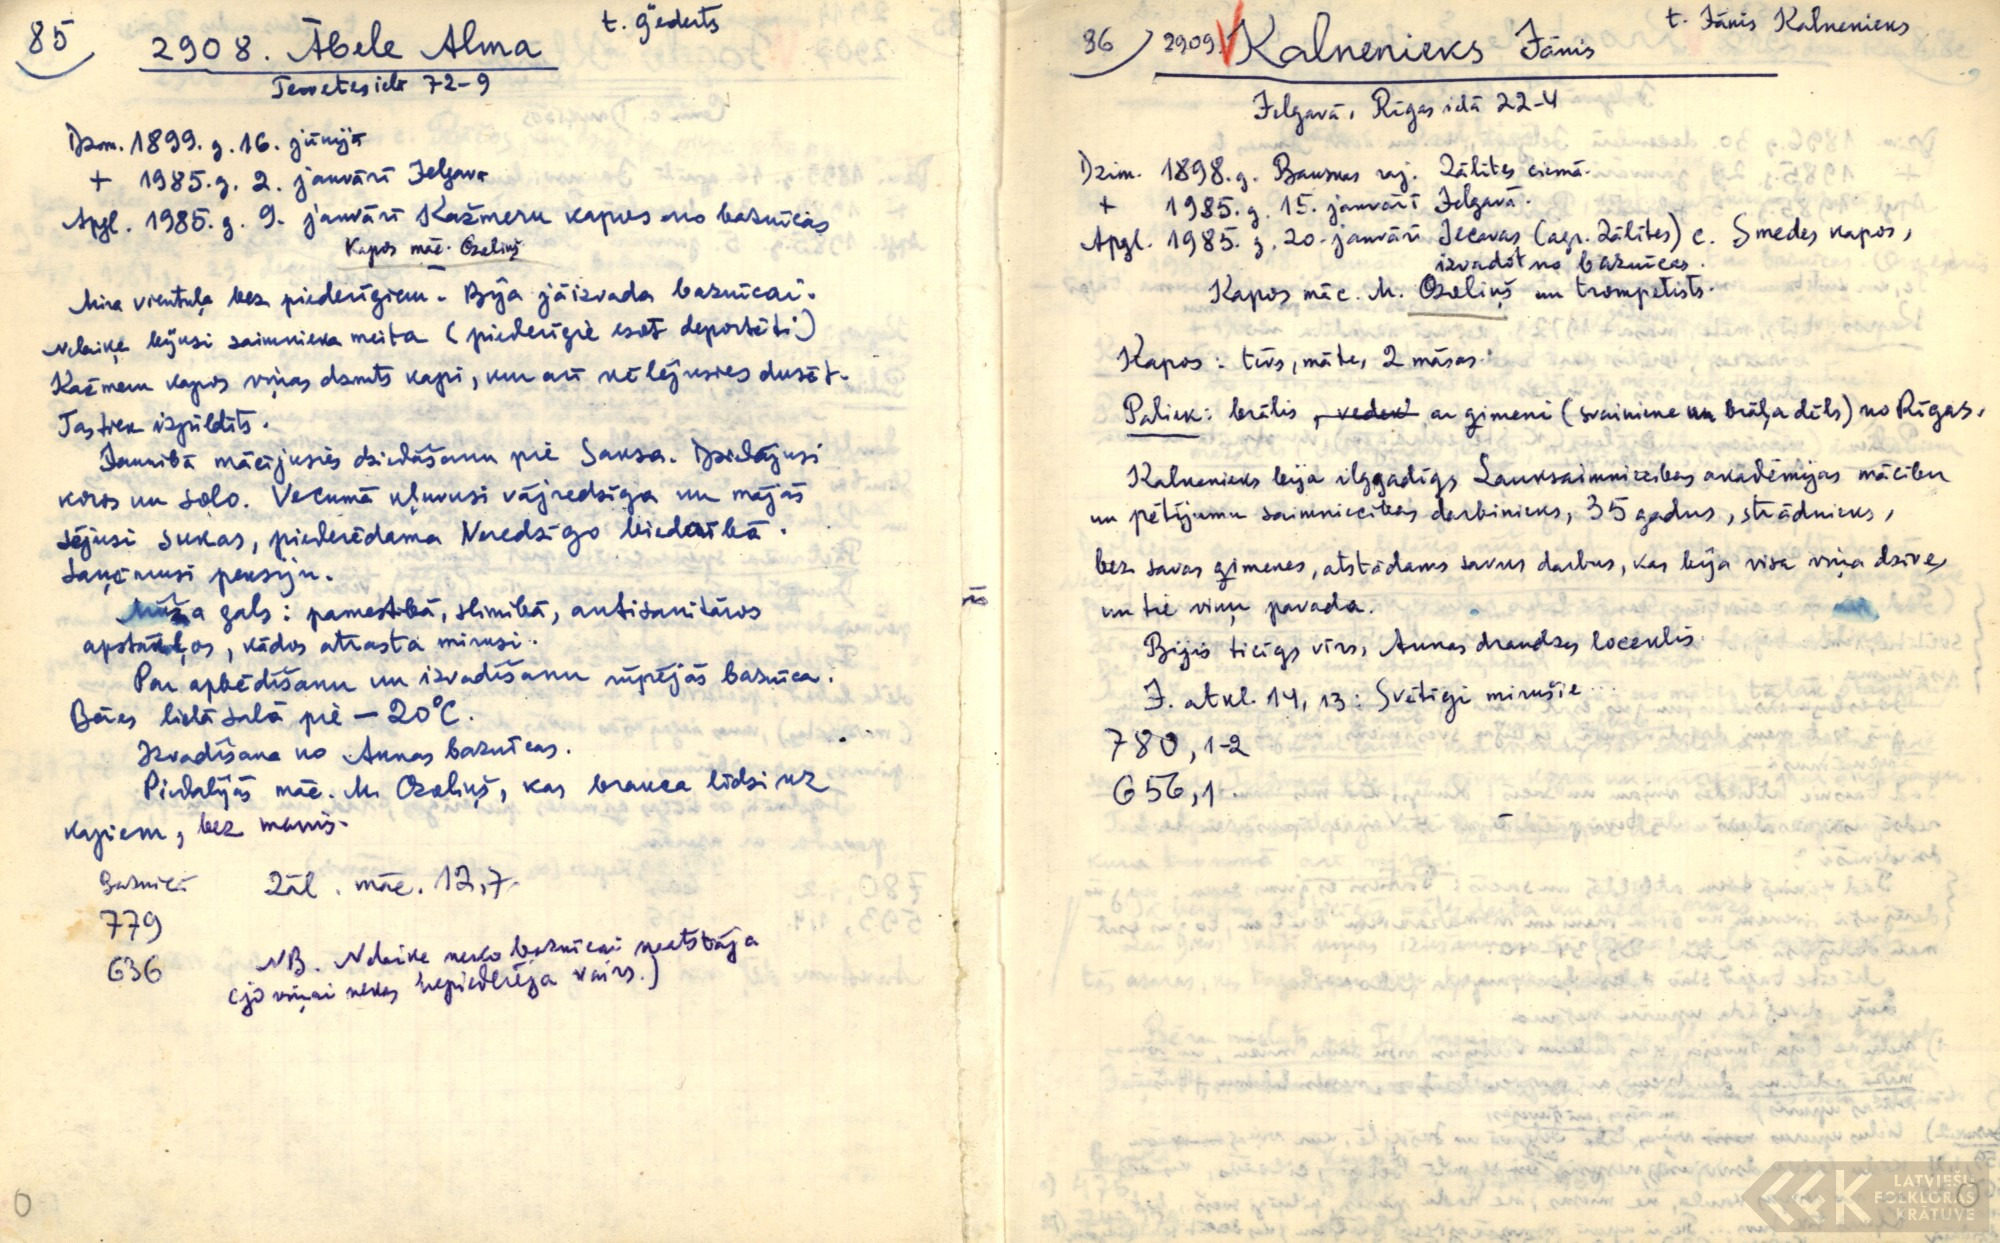 85
t. Ģederts
2908. Ābele Alma
Tērvetes ielā 72-9
Dzim. 1899. g. 16. jūnijā
+ 1985. g. 2. janvārī Jelgavā
Apgl. 1985. g. 9. janvārī Kazmeru kapos no baznīcas
Kapos māc. Ozoliņš
Mira vientuļa bez piederīgiem. Bija jāizvada baznīcai.
Nelaiķe bijusi saimnieka meita (piederīgie esot deportēti)
Kažmeru kapos viņas dzimts kapi, kur arī vēlējusies dusēt.
Tas tiek izpildīts.
Jaunībā mācījusies dziedāšanu pie Saksa. Dziedājusi
koros un solo. Vecumā kļuvusi vājredzīga un mājās
sējusi sukas, piederēdama Neredzīgo biedrībā.
Saņēmusi pensiju.
Mūža gals: pamestībā, slimībā, antisanitāros
apstākļos, kādos atrasta mirusi.
Par apbedīšanu un izvadīšanu rūpējās baznīca.
Bēres lielā salā pie -20°C.
Izvadīšana no Annas baznīcas.
Piedalījās māc. M. Ozoliņš, kas brauca līdzi uz
kapiem, bez manis.
Baznīcā Zāl. māc. 12,7
779
636
NB. Nelaiķe neko baznīcai neatstāja
(jo viņai nekas nepiederēja vairs.)
86
2909. Kalnenieks Jānis
t. Jānis Kalnenieks
Jelgavā, Rīgas ielā 22-4
Dzim. 1898. g. Bauskas raj. Zālītes ciemā.
+ 1985. g. 15. janvārī Jelgavā.
Apgl. 1985. g. 20. janvārī Iecavas (agr. Zālītes) c. Smedes kapos,
izvadot no baznīcas.
Kapos māc. M. Ozoliņš un trompetists.
Kapos: tēvs, māte, 2 māsas.
Paliek: brālis, ar ģimeni (svainiene un brāļa dēls) no Rīgas.
Kalnenieks bija ilggadīgs Lauksaimniecības akadēmijas mācību
un pētījumu saimniecības darbinieks, 35 gadus, strādnieks,
bez savas ģimenes, atstādams savus darbus, kas bija visa viņa dzīve,
un tie viņu pavada.
Bijis ticīgs vīrs, Annas draudzes loceklis
J. atkl. 14, 13: Svētīgi mirušie...
780, 1-2
656, 1.
0
0
LATVIEŠU
FOLKLORAS
KRĀTUVE